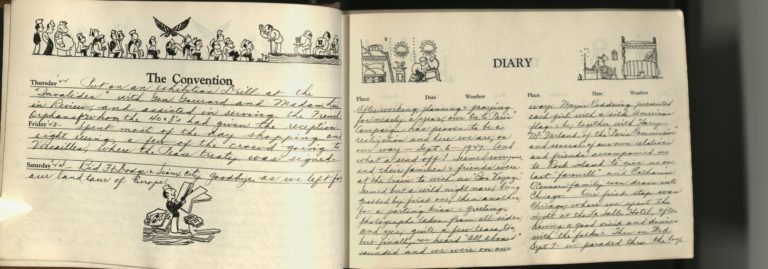 The Convention
Thursday Put on an exhibition Drill at the
"Invalides" with Gen. Gourard and Madam
in Review, and assisted in serving the French
Orphans from the 40 & 8's had for the reception
Friday Spent most of the day shopping and
sight seeing, a few of the crowd going to
Versailles, where the Peace treaty was signed
Saturday Bid Ft. Dodge & Sioux City goodbye as we left for
our land tour of Europe.
DIARY
Place Date Weather
After working, planning & praying
for nearly a year, our On to Paris
Campaign has proven to be a
realization and here we are, on
our way - Sept. 6 -
what a send off! It seemed everyone
and their families & friends were
at the train to wish us "Bon Voyage".
Seemed but a wild nightmare being
grabbed by first one, then another
for a parting kiss - greeting,
photographs taken from all sides,
and yes, quite a few tears, too,
but finally, we heard "All aboard"
sounded and we were on our
Place Date Weather
way. Mayor presented
each girl with a silk American
flag & he together with Harry
Mc Farland of the Paris Commission
and several of our own relatives
and friends accompanied us
to to give us one
last "farewell" and Catharine
family, even drove into
Chicago. Our first stop was
Chicago, where we spent the
night at the La Salle Hotel, after
having a good visit and dinner
with the folks. Then on Wed
Sept 7 - we paraded thru the loop